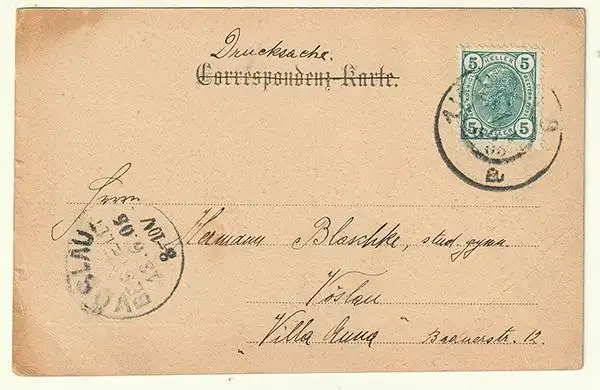 Drucksache.
Correspondenz-Karte.
5 HELLER 5
5 HELLER 5
05
a
Herrn
Hermann Blaschke, stud. gymn.
Vöslau
"Villa Anna" Badnerstr. 12.
VÖSLAU
13.6.05
8-10V